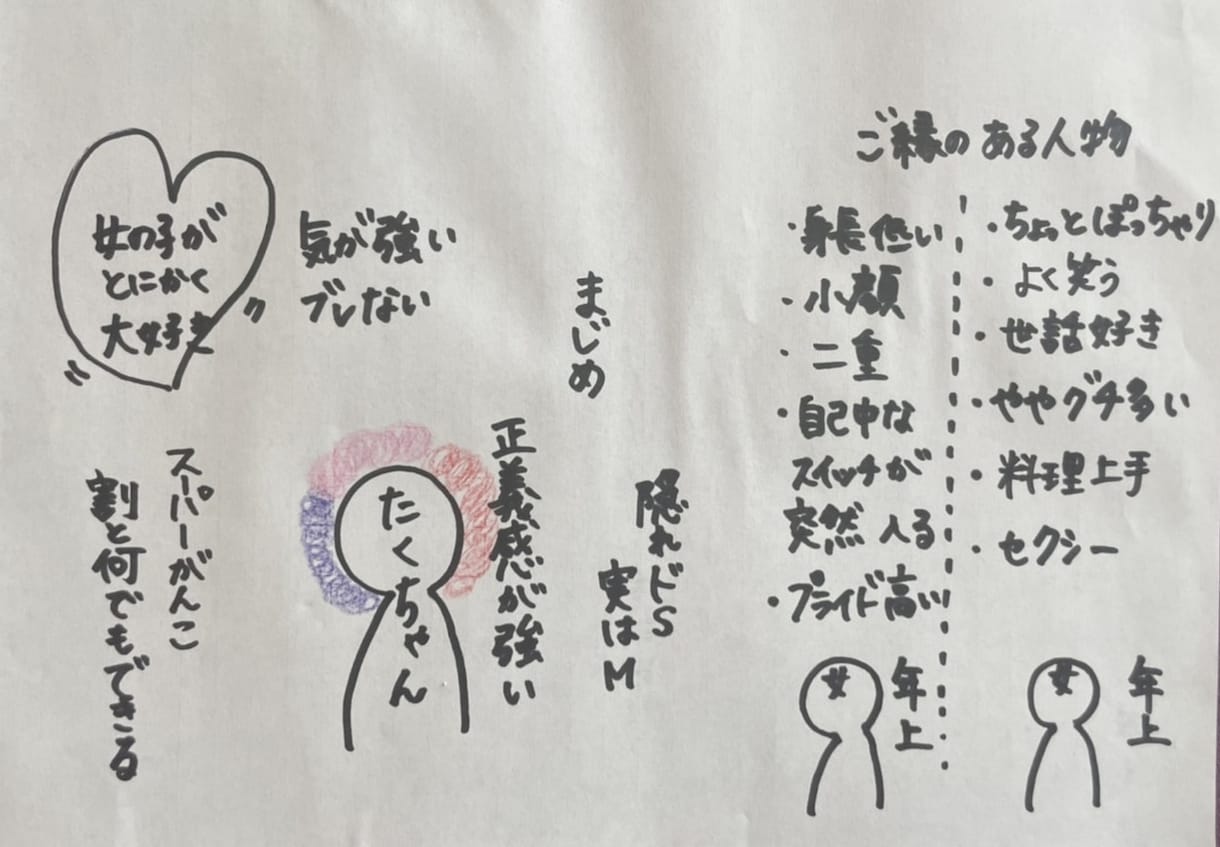 女の子が
とにかく
大好き
気が強い
ブレない
まじめ
スーパーがんこ
割と何でもできる
たくちゃん
正義感が強い
隠れドS
実はM
ご縁のある人物
・身長低い
・小顔
・二重
・自己中な
スイッチが
突然入る
・プライド高い
女
年上
・ちょっとぽっちゃり
・よく笑う
・世話好き
・ややグチ多い
・料理上手
・セクシー
女
年上